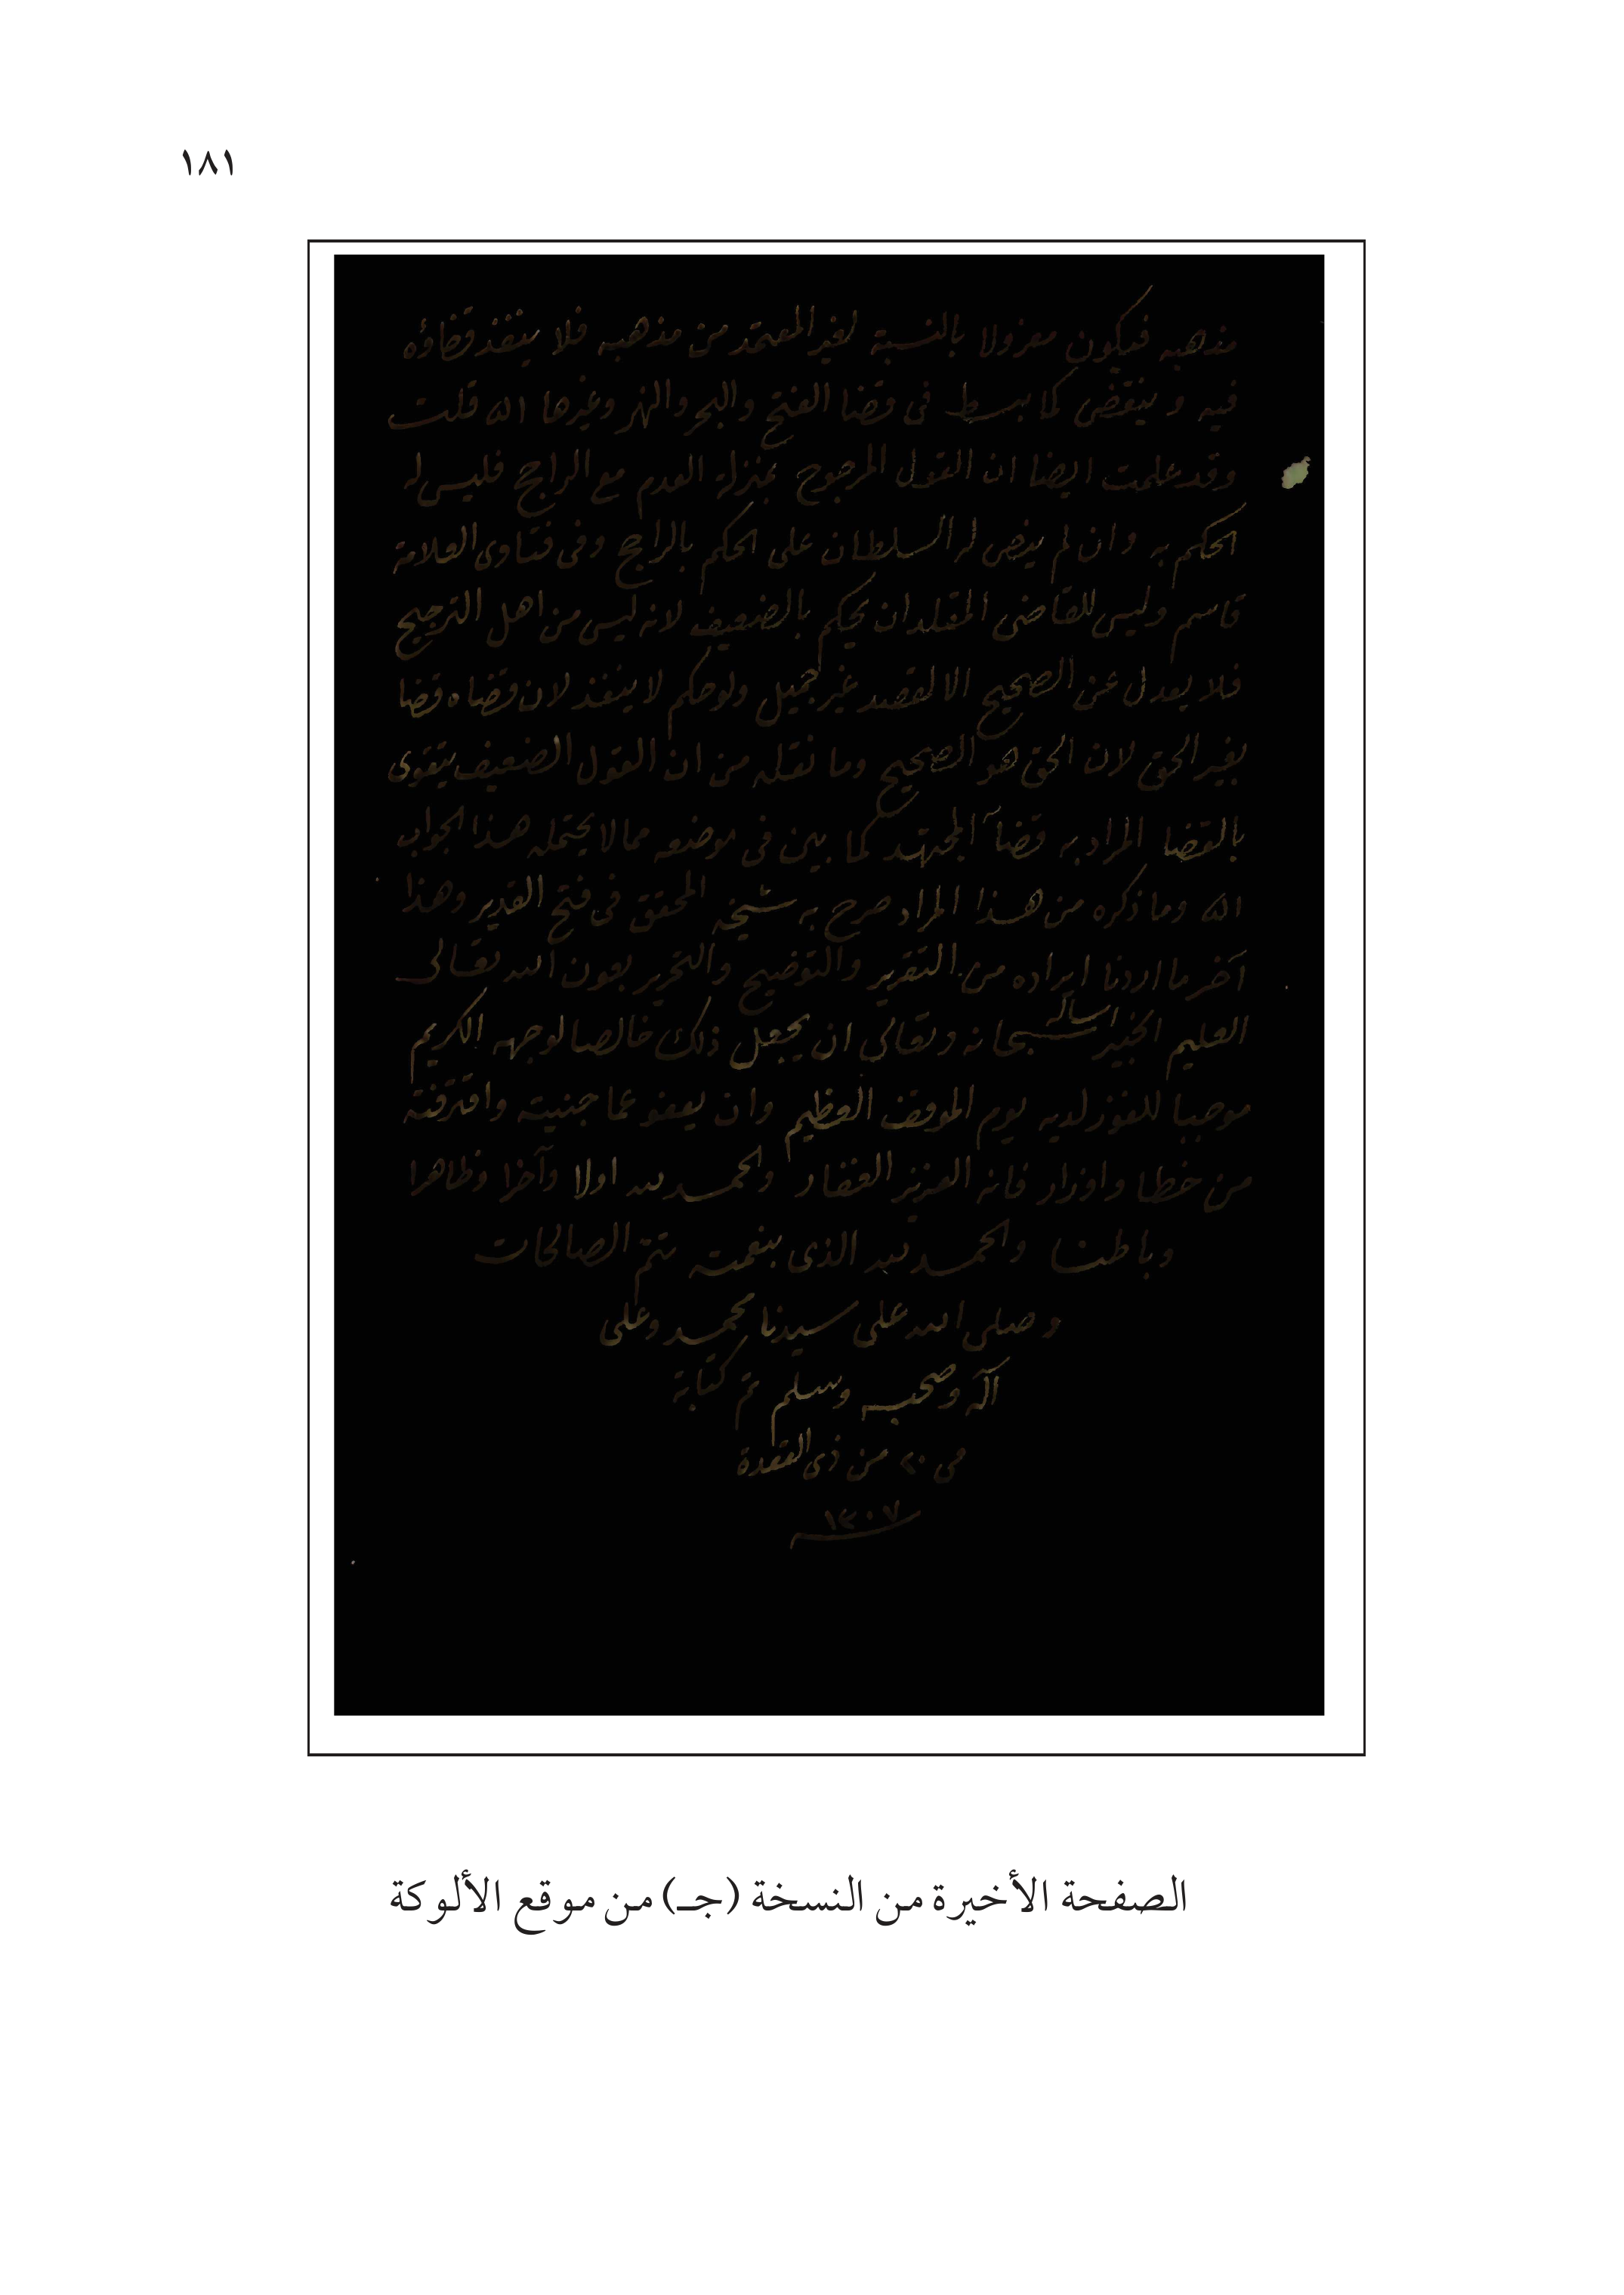 ١٨١
مذهبه فيكون معزولا بالنسبة لغير المعتمد من مذهبه فلا ينفذ قضاؤه
فيه و ينقض كما بسط فى قضا الفتح والبحر والنهر وغيرها اﻫ قلت
وقد علمت ايضا ان القول المرجوح بمنزلة العدم مع الراجح فليس له
الحكم به وان لم ينص له السلطان على الحكم بالراجح وفى فتاوى العلامة
قاسم وليس للقاضى المقلد ان يحكم بالضعيف لانه ليس من اهل الترجيح
فلا يعدل عن الصحيح الا لقصد غير جميل ولو حكم لا ينفذ لان قضاه قضا
بغير الحق لان الحق هو الصحيح وما نقله من ان القول الضعيف يتقوى
بالقضا المراد به قضآ المجتهد كما بين فى موضعه مما لا يحتمله هذا الجواب
اﻫ وما ذكره من هذا المراد صرح به شيخه المحقق فى فتح القدير وهذا
آخر ما اردنا ايراده من التقرير والتوضيح والتحرير بعون الله تعالى
العليم الخبير اساله سبحانه وتعالى ان يجعل ذلك خالصا لوجهه الكريم
موجبا للفوز لديه يوم الموقف العظيم وان يعفو عما جنيته واقترفته
من خطا واوزار فانه العزيز الغفار والحمد لله اولا وآخرا وظاهرا
وباطنا والحمد لله الذى بنعمته تتم الصالحات
وصلى الله على سيدنا محمد وعلى
آله وصحبه وسلم تم كتابة
فى ٢٠ من ذى القعدة
١٣٠٧
الصفحة الأخيرة من النسخة (جـ) من موقع الألوكة